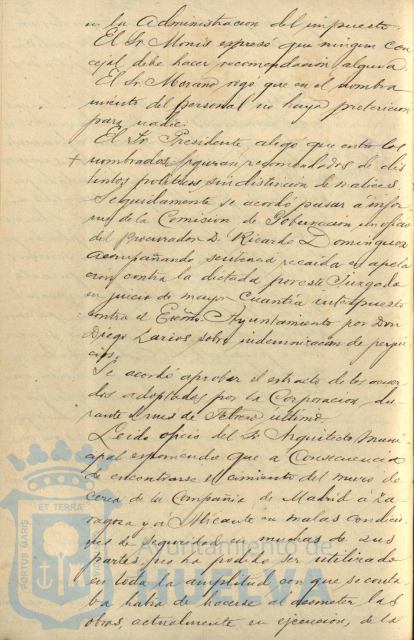 n la Administracion del impuesto.
El Sr. Monis expresó que ningun con
cejal debe hacer recomendación alguna.
El Sr. Moreno rogó que en el nombra
miento del personal no haya pretericion
para nadie.
El Sr. Presidente, alegó que entre los
nombrados, figuran recomendados de dis
tintos politicos sin distincion de matices.
Seguidamente se acordó pasar á infor
me de la Comision de Gobernacion un oficio
del Procurador D. Ricardo Dominguez
acompañando sentencia recaida en apela
cion contra la dictada por este Juzgado
en juicio de mayor Cuantia interpuesto
contra el Excmo. Ayuntamiento por Don
Diego Larios sobre indemnizacion de perjui
cios.
Se acordó aprobar el extracto de los acuer
dos adoptados por la Corporacion, du
rante el mes de Febrero último.
Leido oficio del Sr. Arquitecto Muni
cipal exponiendo que a Consecuencia
de encontrarse el cimiento del muro de
cerca de la Compañia de Madrid á Za
ragoza y á Alicante en malas condicio
nes de seguridad en muchas de sus
partes, no ha podido ser utilizado
en toda la amplitud con que se conta
ba habia de hacerse al acometer las
obras, actualmente en ejecucion, de la
PORTUS MARIS
ET TERRAE
Ayuntamiento de
HUELVA